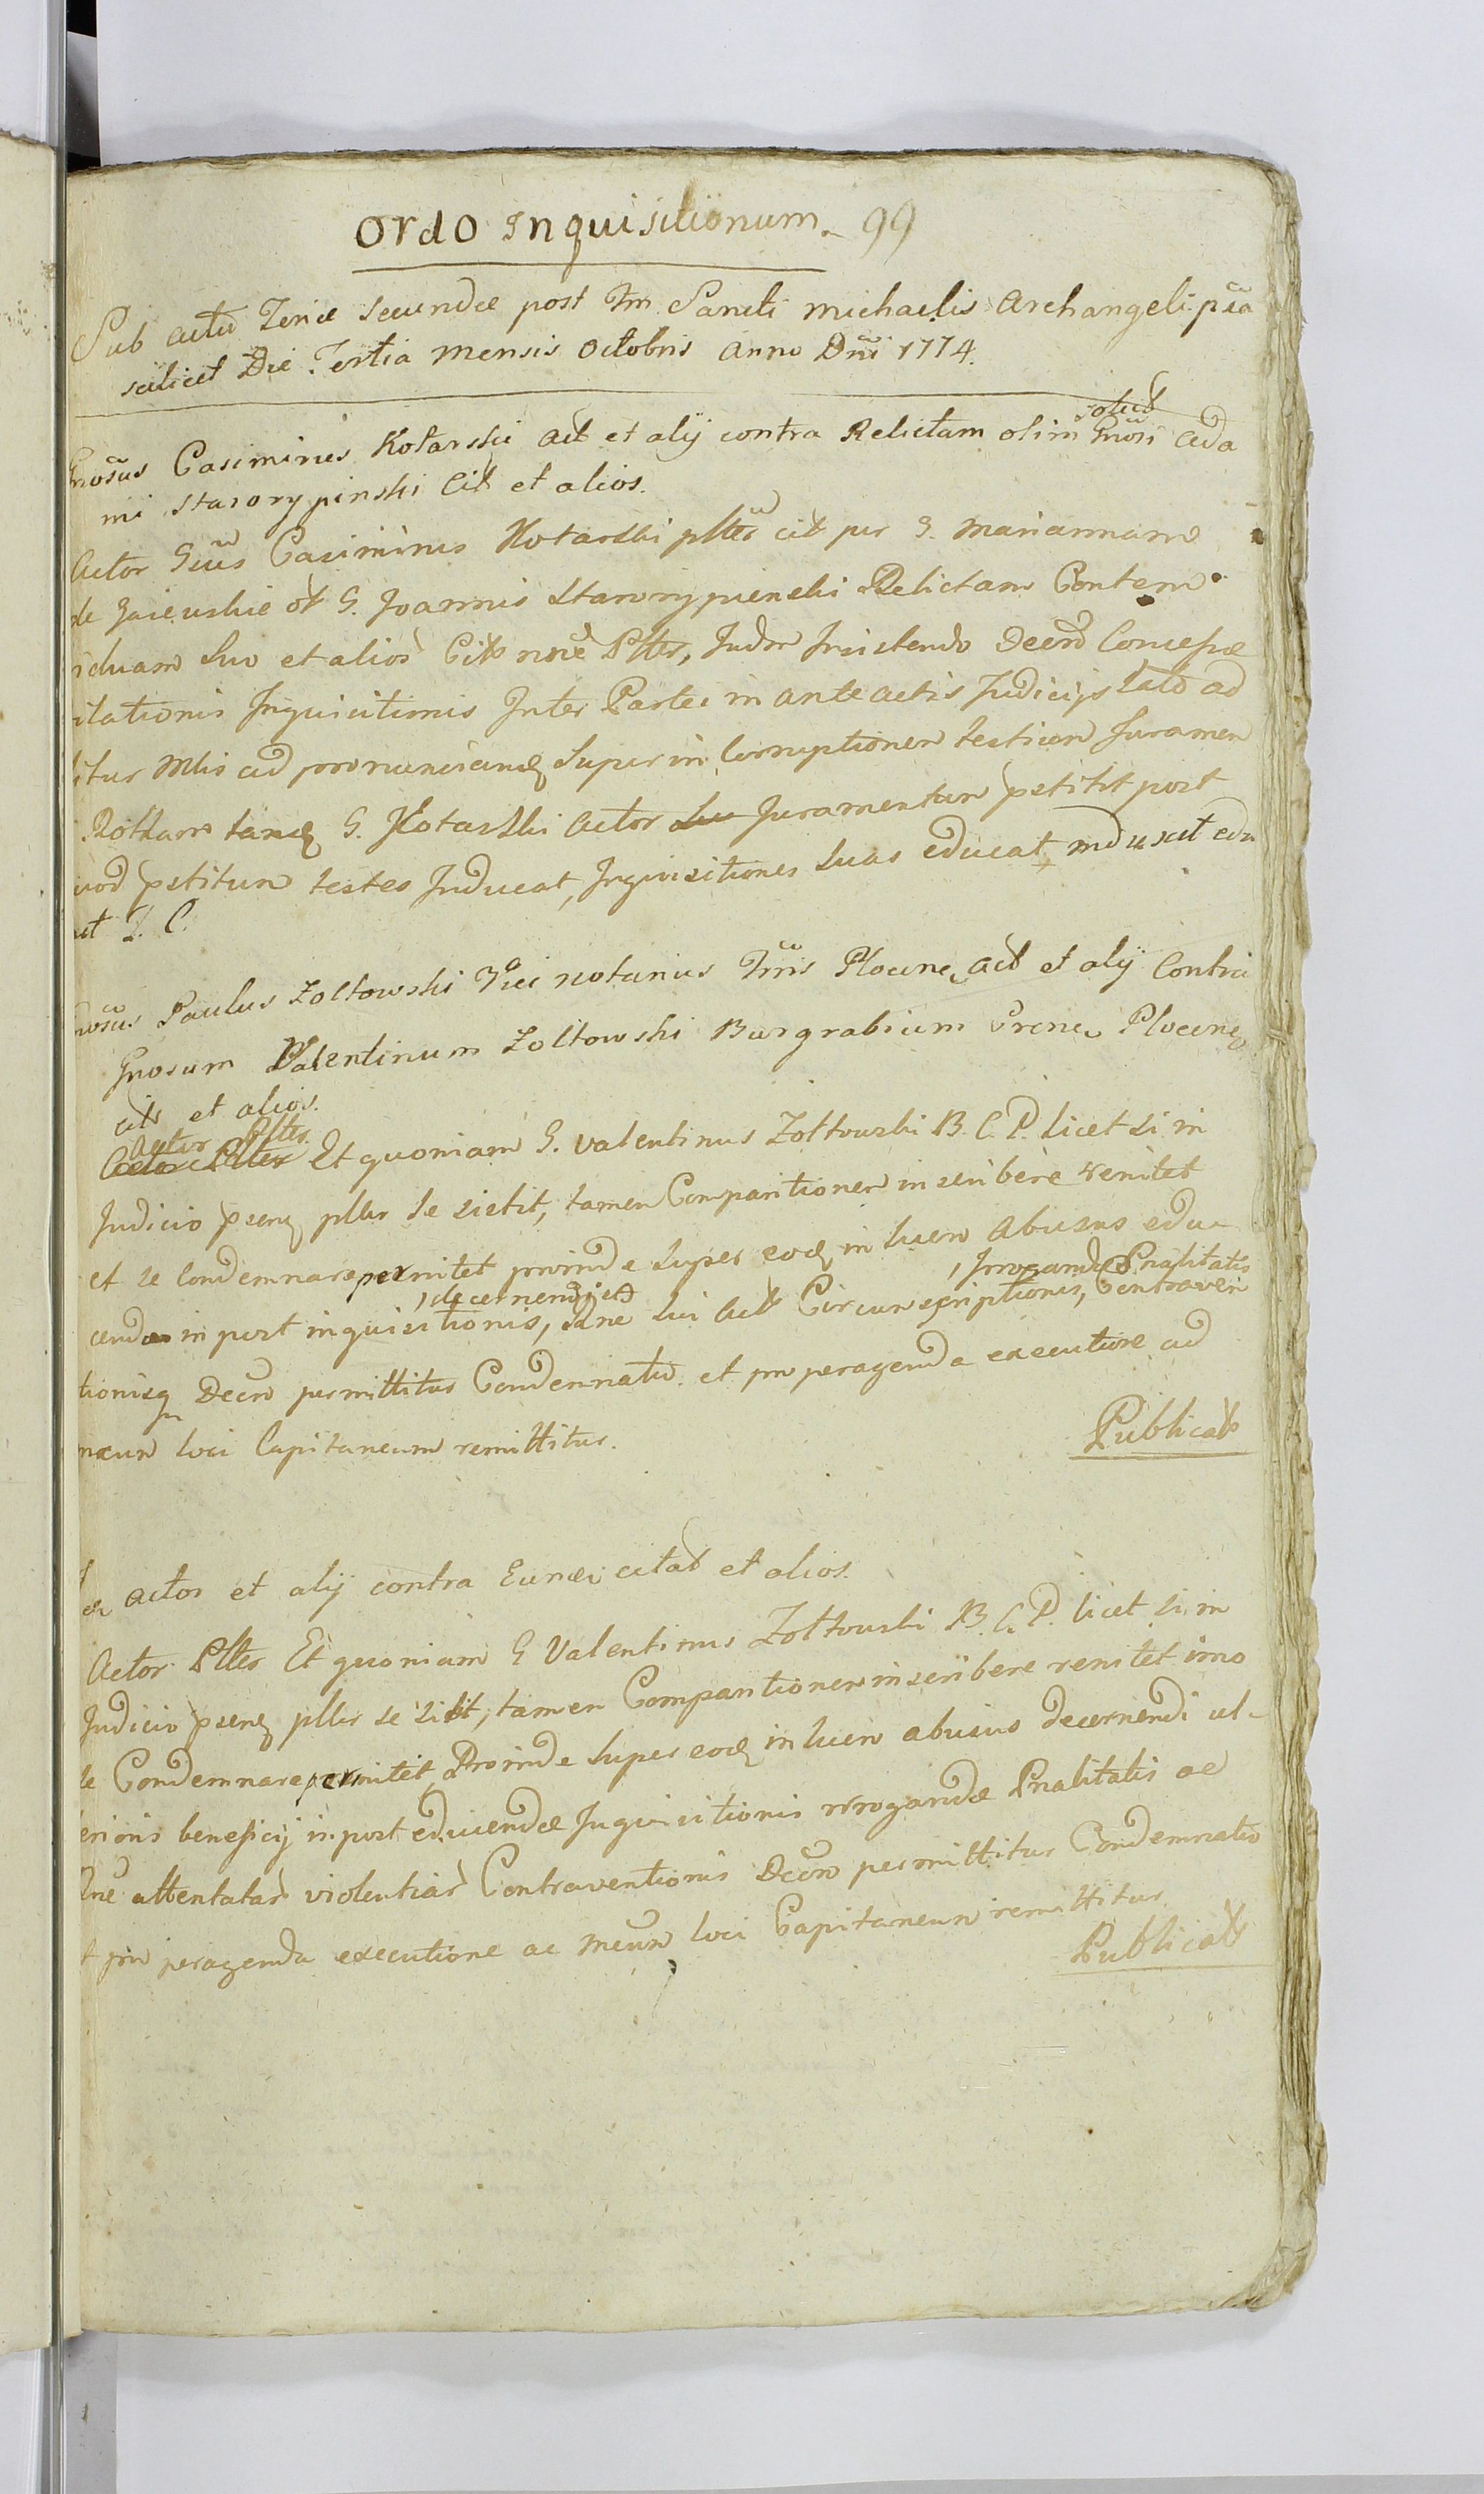 Ordo Inquisitionum. 99
Sub actu Feriæ secundæ post Fm Sancti Michaelis Archangeli pxa
scilicet Die Tertia Mensis Octobris Anno Dni 1774.
solut
Gnosus Casimirus Kotarski act et alij contra Relictam olim Gnosi Ada
mi Starorypinski Cit et alios.
Actor Gsus Casimirus Kotarski plter cit per G. Mariannam
de ot G. Joannis Starorypienski Relictam Contem
iduam suo et alios Cit nne Plter, Judm Insistendo Decro Concessæ
itationis Inquisitionis Inter Partes in ante actis Judicijs lato ad
itur Mlis ad pronuncianq super in Corruptionem testium Juramen
Rotham tanq G. Kotarski Actor Juramentum pstitit post
uod pstitum testes Inducat, Inquisitiones suas educat, induxit edu
xit I. C.
nosus Paulus Zoltowski Vice Notarius Trris Plocen, act et alij Contra
Gnosum Valentinum Zoltowski Burgrabium Crenem Plocen
cit et alios.
Actor Plter
Actor Plter Et quoniam G. Valentinus Zoltowski B. C. P. licet si in
Judicio psenq plter se sistit, tamen Comparitionem inscribere renitet
et se Condemnare permitet proinde super eoq in luen abusus edu-
, decernendi et , Irrogandæ Pnalitatis
cendæ in post inquisitionis, sine sui act Circumscriptionis, Contraven
tionisq Decro permittitur Condemnatio et pro peragenda executione ad
neum loci Capitaneum remittitur.
Publicat
Actor et alij contra Eunde citat et alios.
Actor Plter Et quoniam G Valentinus Zoltowski B. C. P. licet si in
Judicio psenq plter se sistit, tamen Comparitionem inscribere renitet imo
se Condemnare permitet, Proinde super eoq in luen abusus decernendi ul-
terioris beneficij in post educendæ Inquisitionis irrogandæ Pnalitatis ac
attentatas violentias Contraventionis Decro permittitur Condemnatio
t pro peragenda executione ac meum loci Capitaneum remittitur.
Publicat